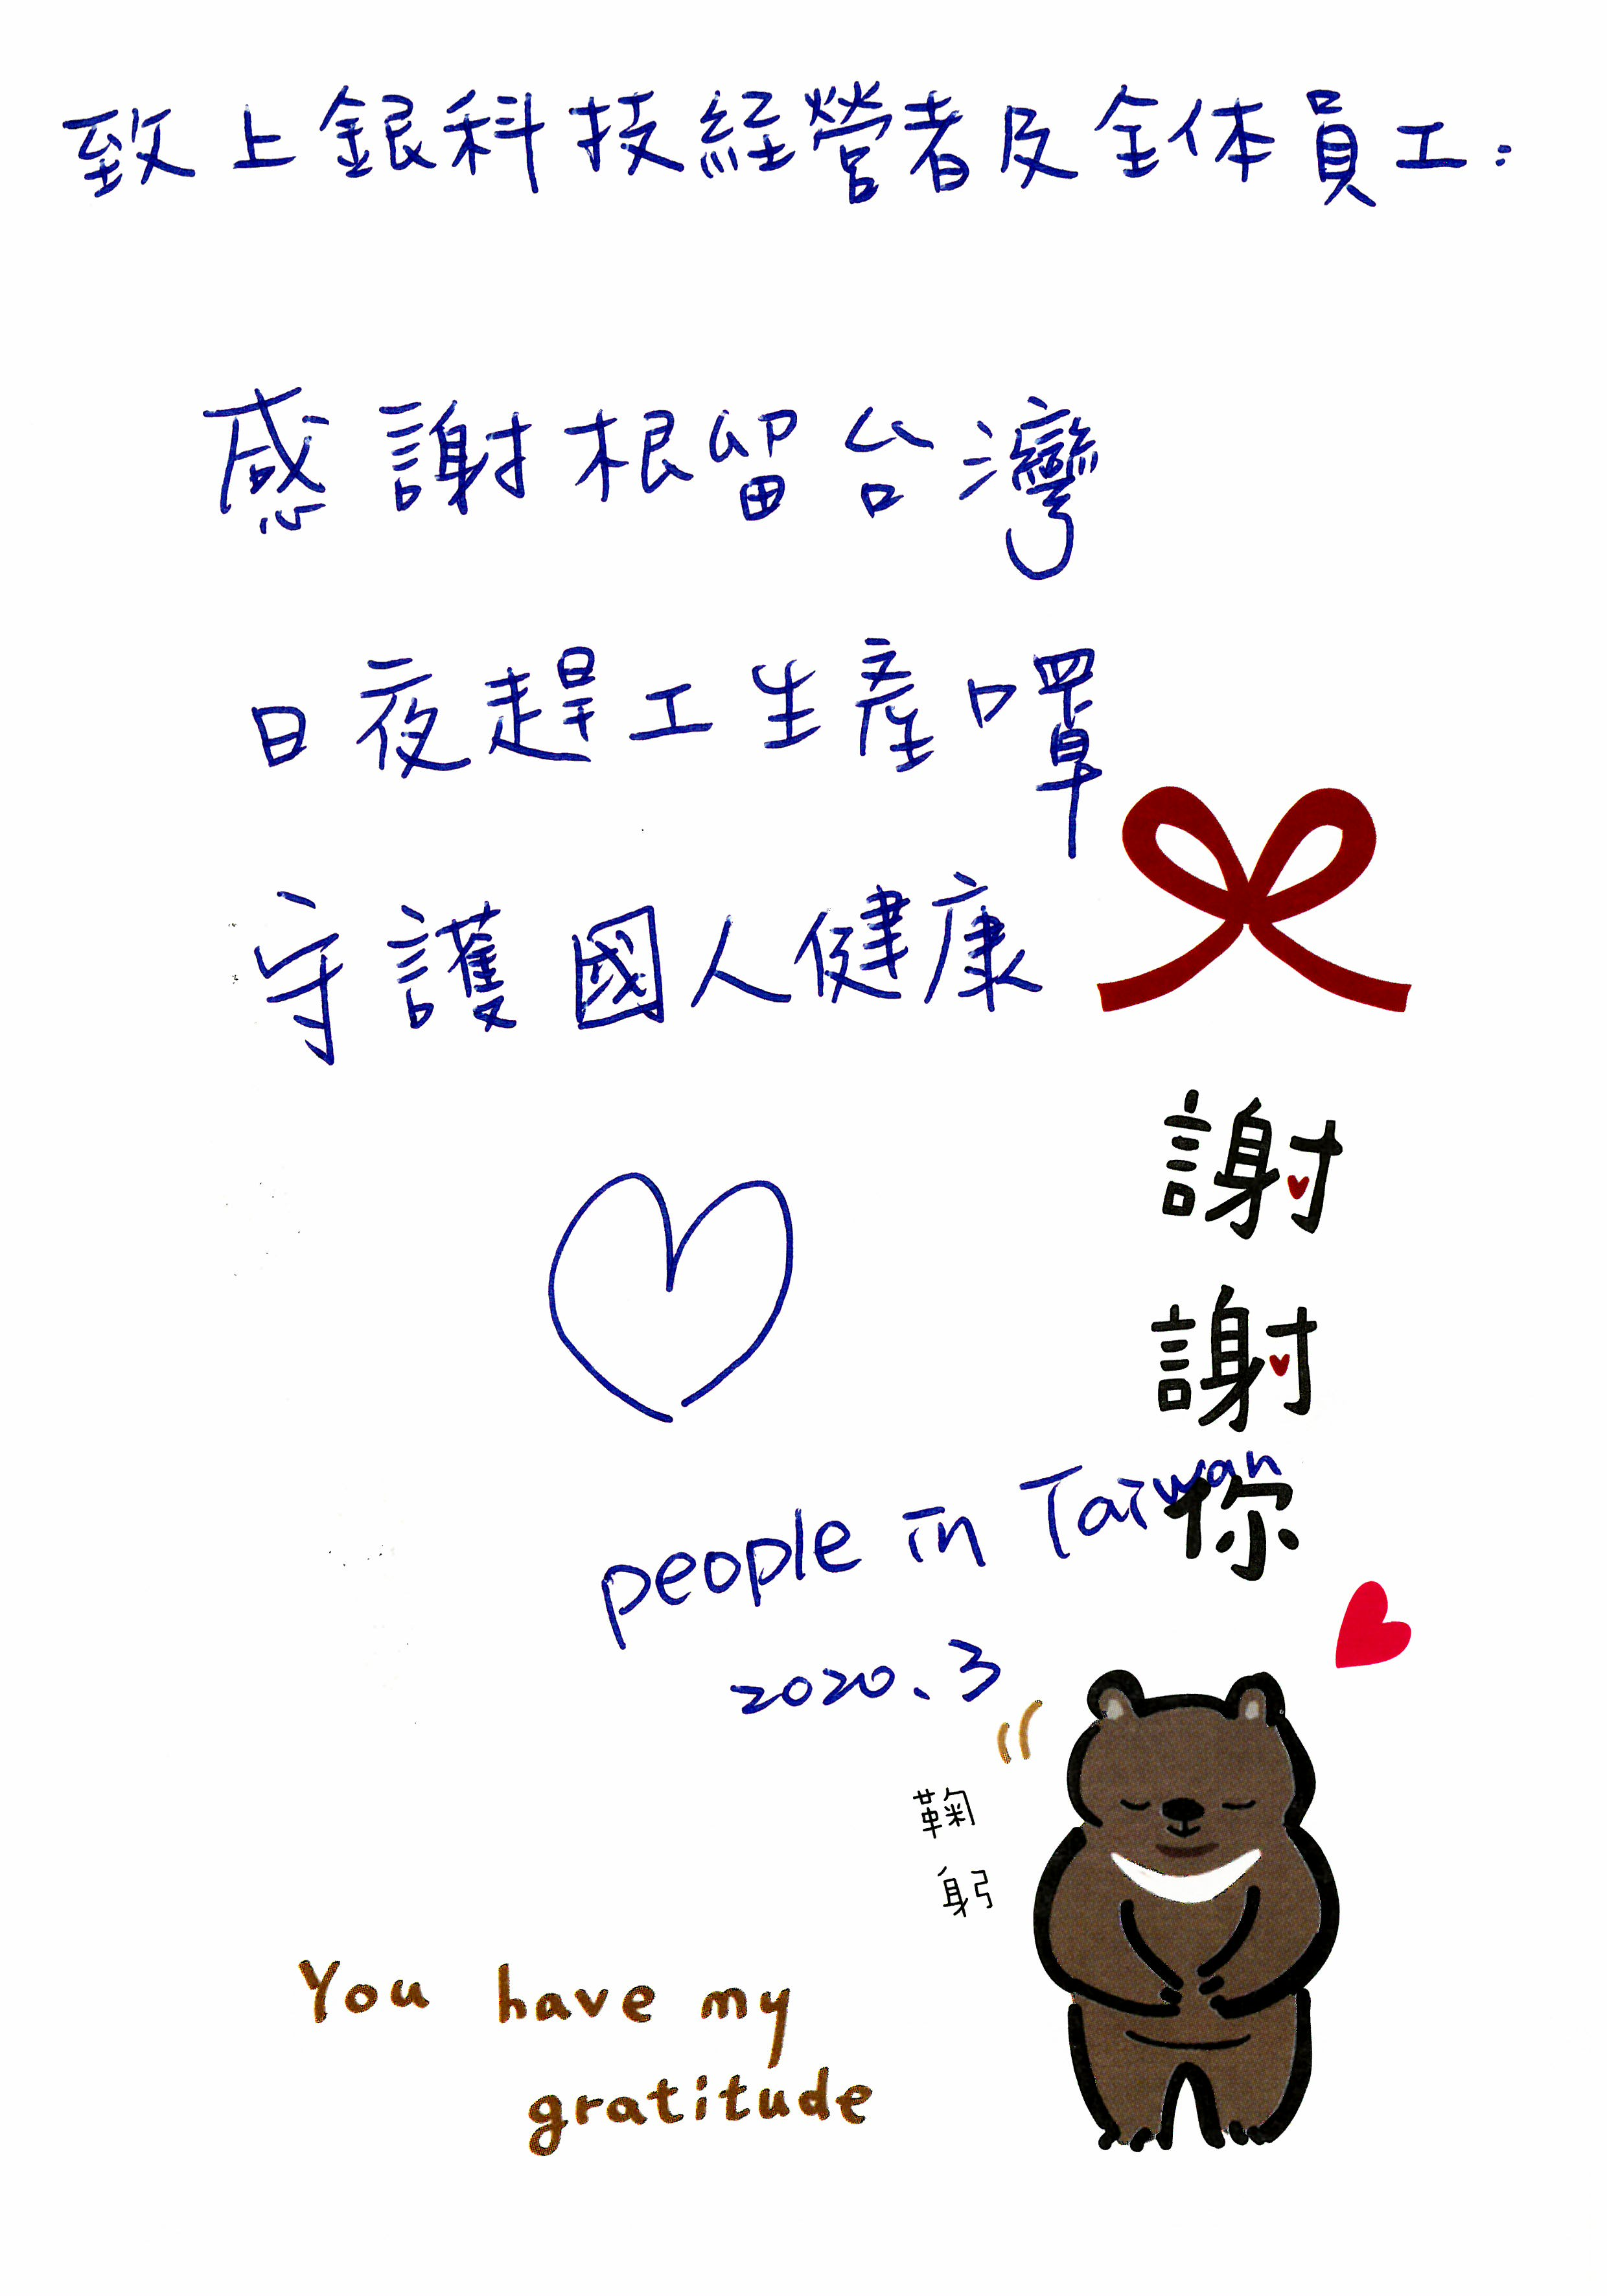 致上銀科技経營者及全体員工：
感謝根留台灣
日夜趕工生產口罩
守護國人健康
謝
謝
你
people in Taiwan
2020.3
鞠
躬
You have my
gratitude